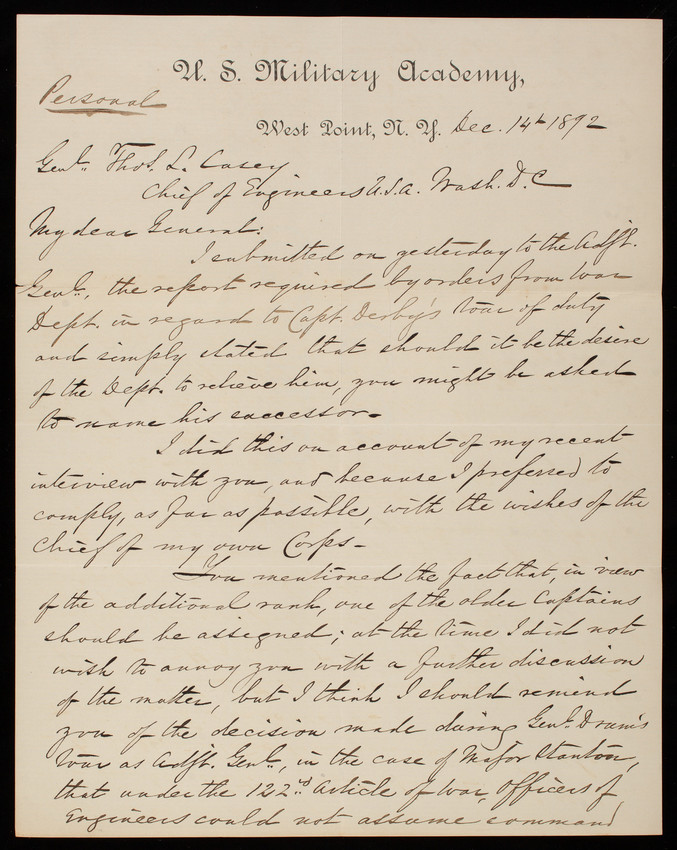 U. S. Military Academy,
Personal
West Point, N. Y. Dec. 14th 1892
Genl. Thos. L. Casey
Chief of Engineers U.S.A. Wash. D.C
My dear General:
I submitted on yesterday to the Adjt.
Genl., the report required by orders from War
Dept. in regard to Capt. Derby's tour of duty
and simply stated that should it be the desire
of the Dept. to relieve him, you might be asked
to name his successor.
I did this on account of my recent
interview with you, and because I preferred to
comply, as far as possible, with the wishes of the
Chief of my own Corps-
You mentioned the fact that, in view
of the additional rank, one of the older Captains
should be assigned; at the time I did not
wish to annoy you with a further discussion
of the matter, but I think I should remind
you of the decision made during Genl. Drum's
tour as Adjt. Genl., in the case of Major Stanton,
that under the 122nd Article of War, Officers of
Engineers could not assume command